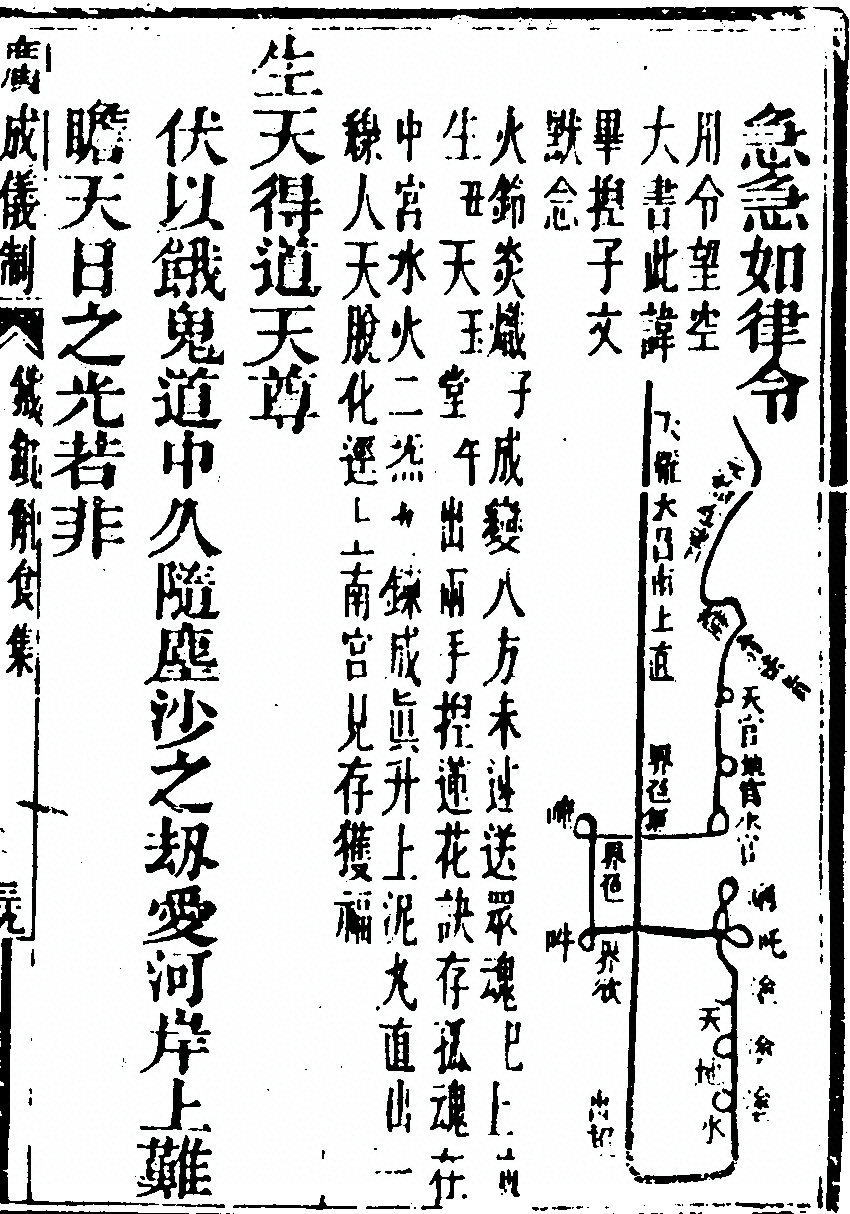 急急如律令
用令望空
大書此諱
畢揑子文
默念
天官地官水官
天地水
界色
火鈴炎熾子成變八方未速送眾魂巳上
生丑天玉堂午出兩手揑蓮花訣存孤魂在
中宮水火二炁鍊成眞升上泥丸直出一
人天脫化逕上南宮見存獲福
生天得道天尊
伏以餓鬼道中久隨塵沙之劫愛河岸上難
瞻天日之光若非
廣成儀制
鐵罐斛食集